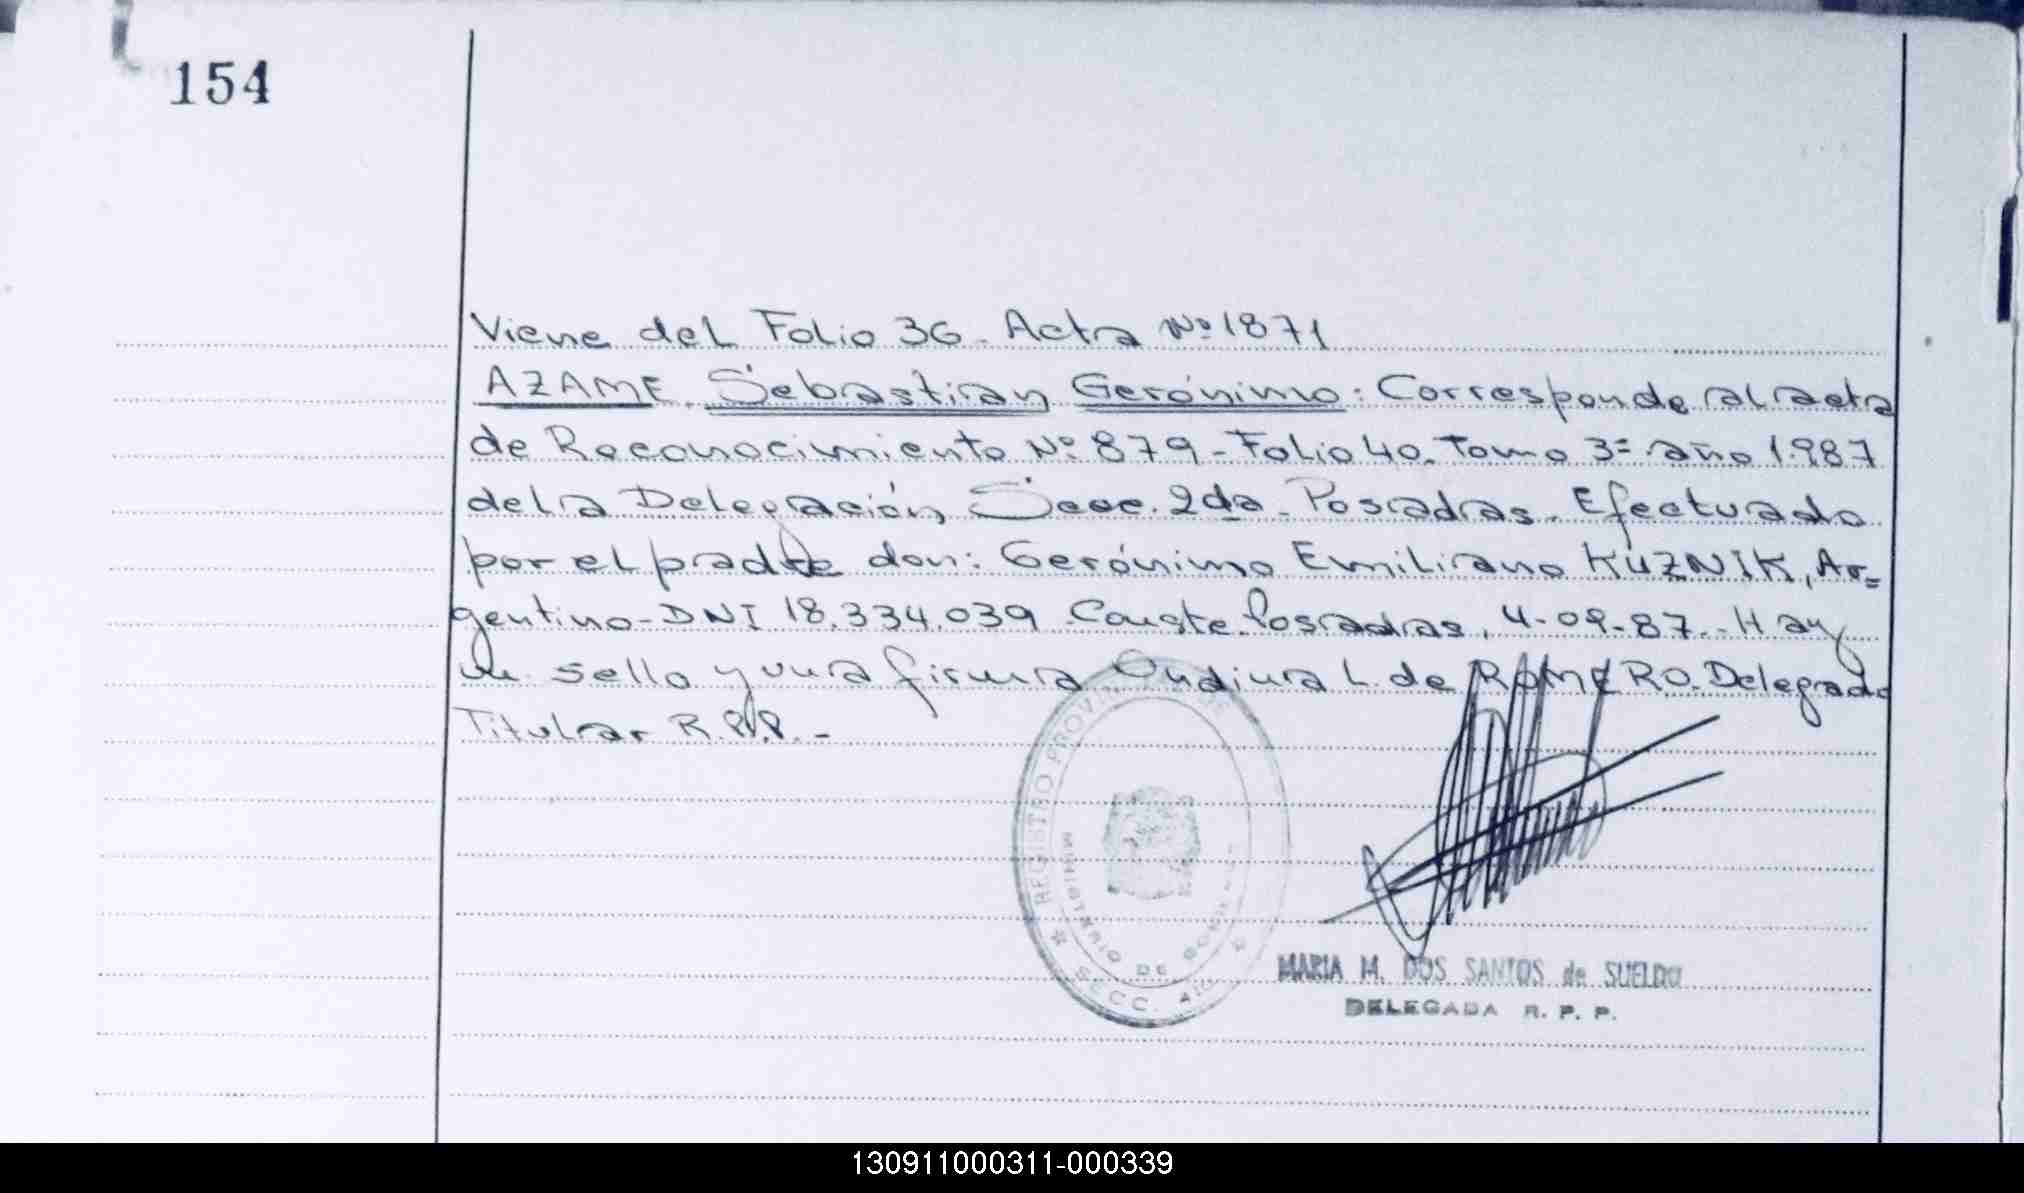 154
Viene del Folio 36. Acta Nº 1871
AZAME, Sebastian Gerónimo: Corresponde al acta
de Reconocimiento Nº 879 - Folio 40. Tomo 3º año 1987
de la Delegación Secc. 2da. Posadas. Efectuado
por el padre don: Gerónimo Emiliano KUZNIK, Ar=
gentino - DNI 18.334.039 Conste. Posadas, 4-09-87.- Hay
un sello y una firma Ondina L. de ROMERO. Delegada
Titular R.P.P. -
REGISTRO PROVINCIAL DE
MINISTERIO DE GOBIERNO
SECC.
MARIA M. DOS SANTOS de SUELDO
DELEGADA R. P. P.
130911000311-000339